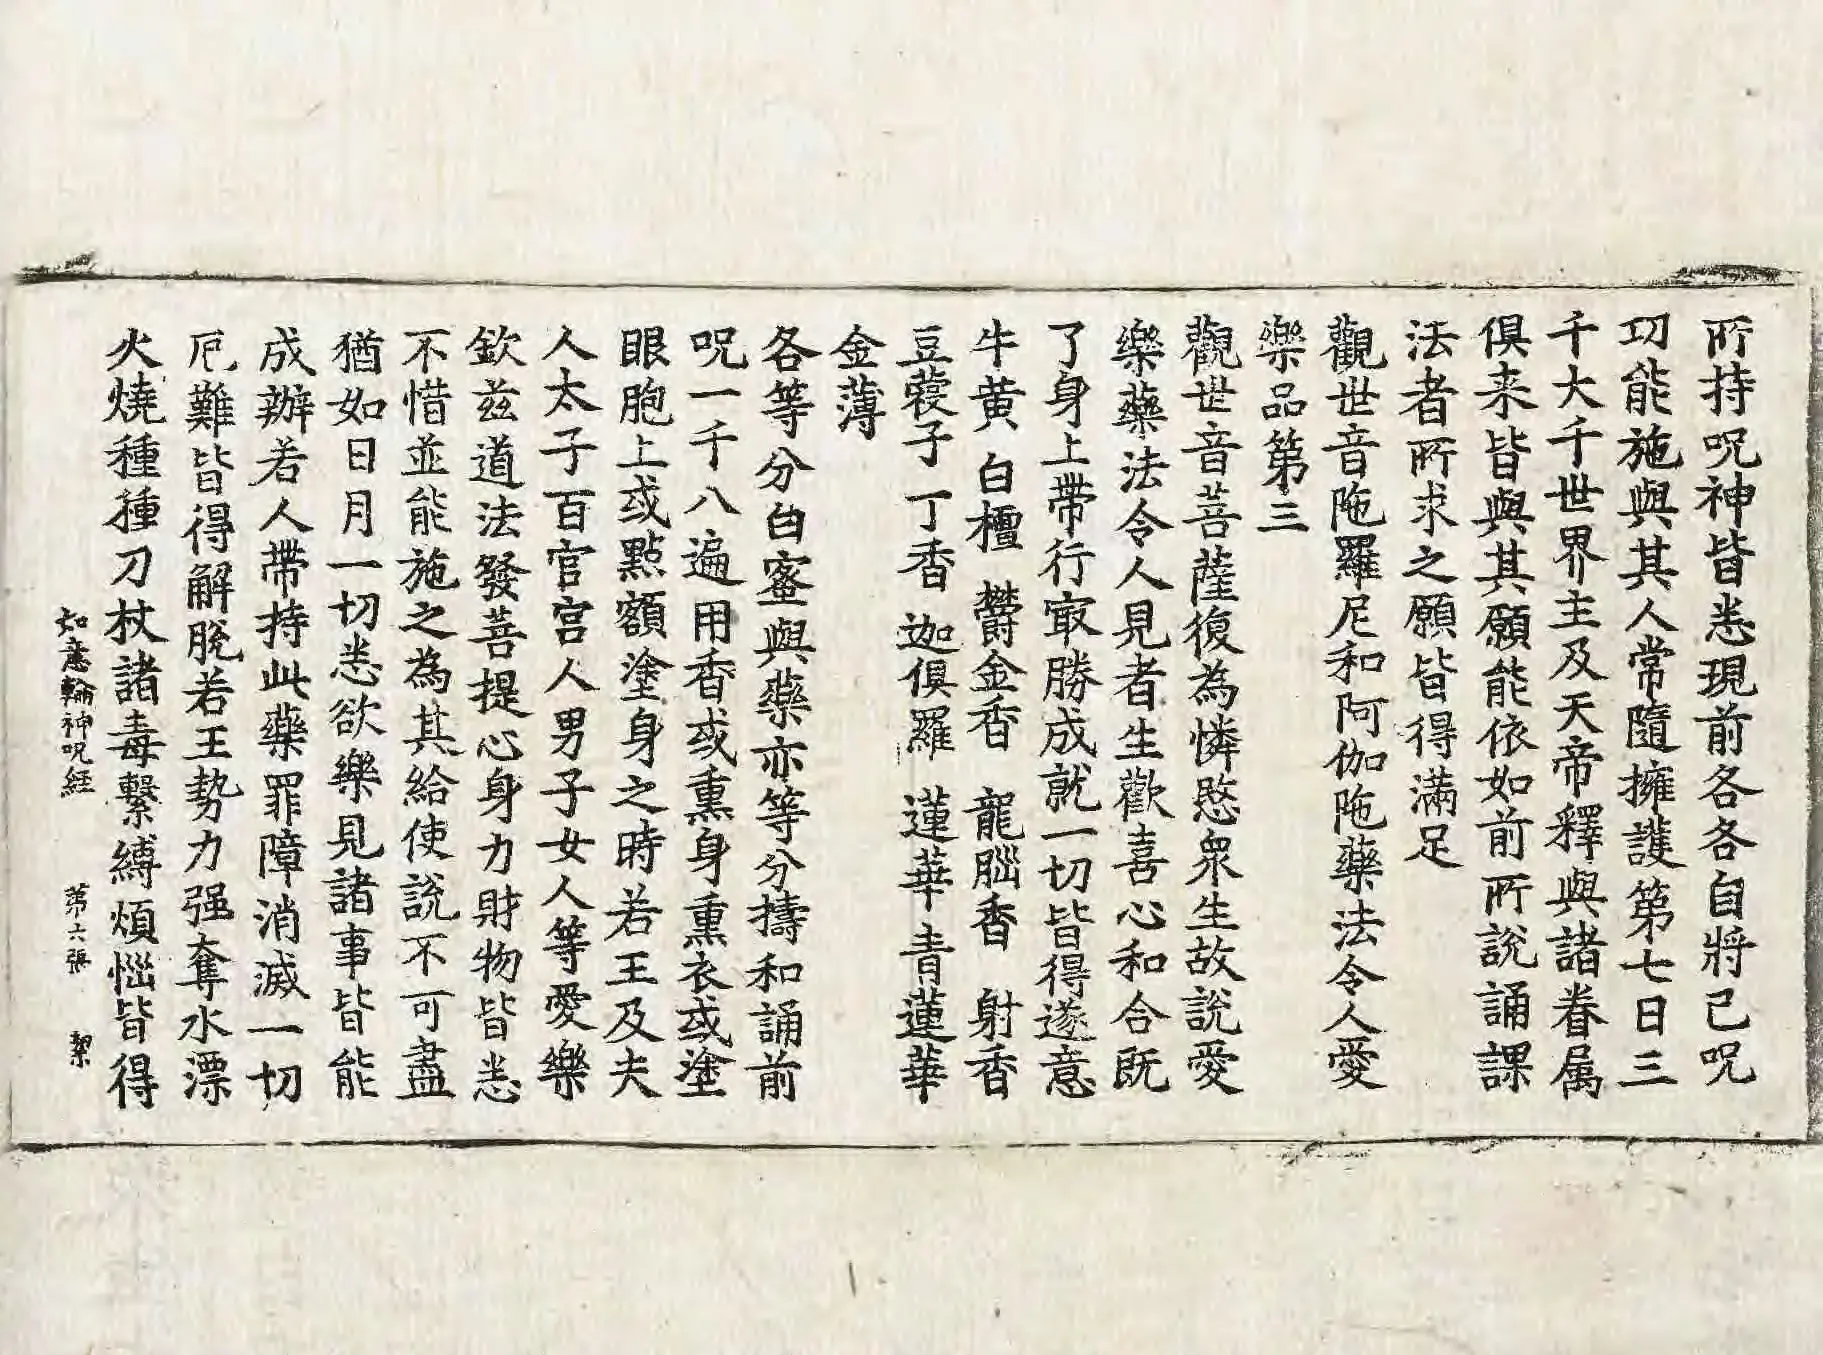 所持呪神皆悉現前各各自將己呪
功能施與其人常隨擁護第七日三
千大千世界主及天帝釋與諸眷属
俱来皆與其願能依如前所說誦課
法者所求之願皆得滿足
觀世音陁羅尼和阿伽陁藥法令人愛
樂品第三
觀世音菩薩復為憐愍衆生故說愛
樂藥法令人見者生歡喜心和合既
了身上帶行㝡勝成就一切皆得遂意
牛黄 白檀 欝金香 龍腦香 射香
豆蔲子 丁香 迦俱羅 蓮華 青蓮華
金薄
各等分白蜜與藥亦等分擣和誦前
呪一千八遍用香或熏身熏衣或塗
眼胞上或點額塗身之時若王及夫
人太子百官宫人男子女人等愛樂
欽兹道法發菩提心身力財物皆悉
不惜並能施之為其給使說不可盡
猶如日月一切悉欲樂見諸事皆能
成辦若人帶持此藥罪障消滅一切
厄難皆得解脫若王勢力强奪水漂
火燒種種刀杖諸毒繫縛煩惱皆得
如意輪神呪經 第六張 絜